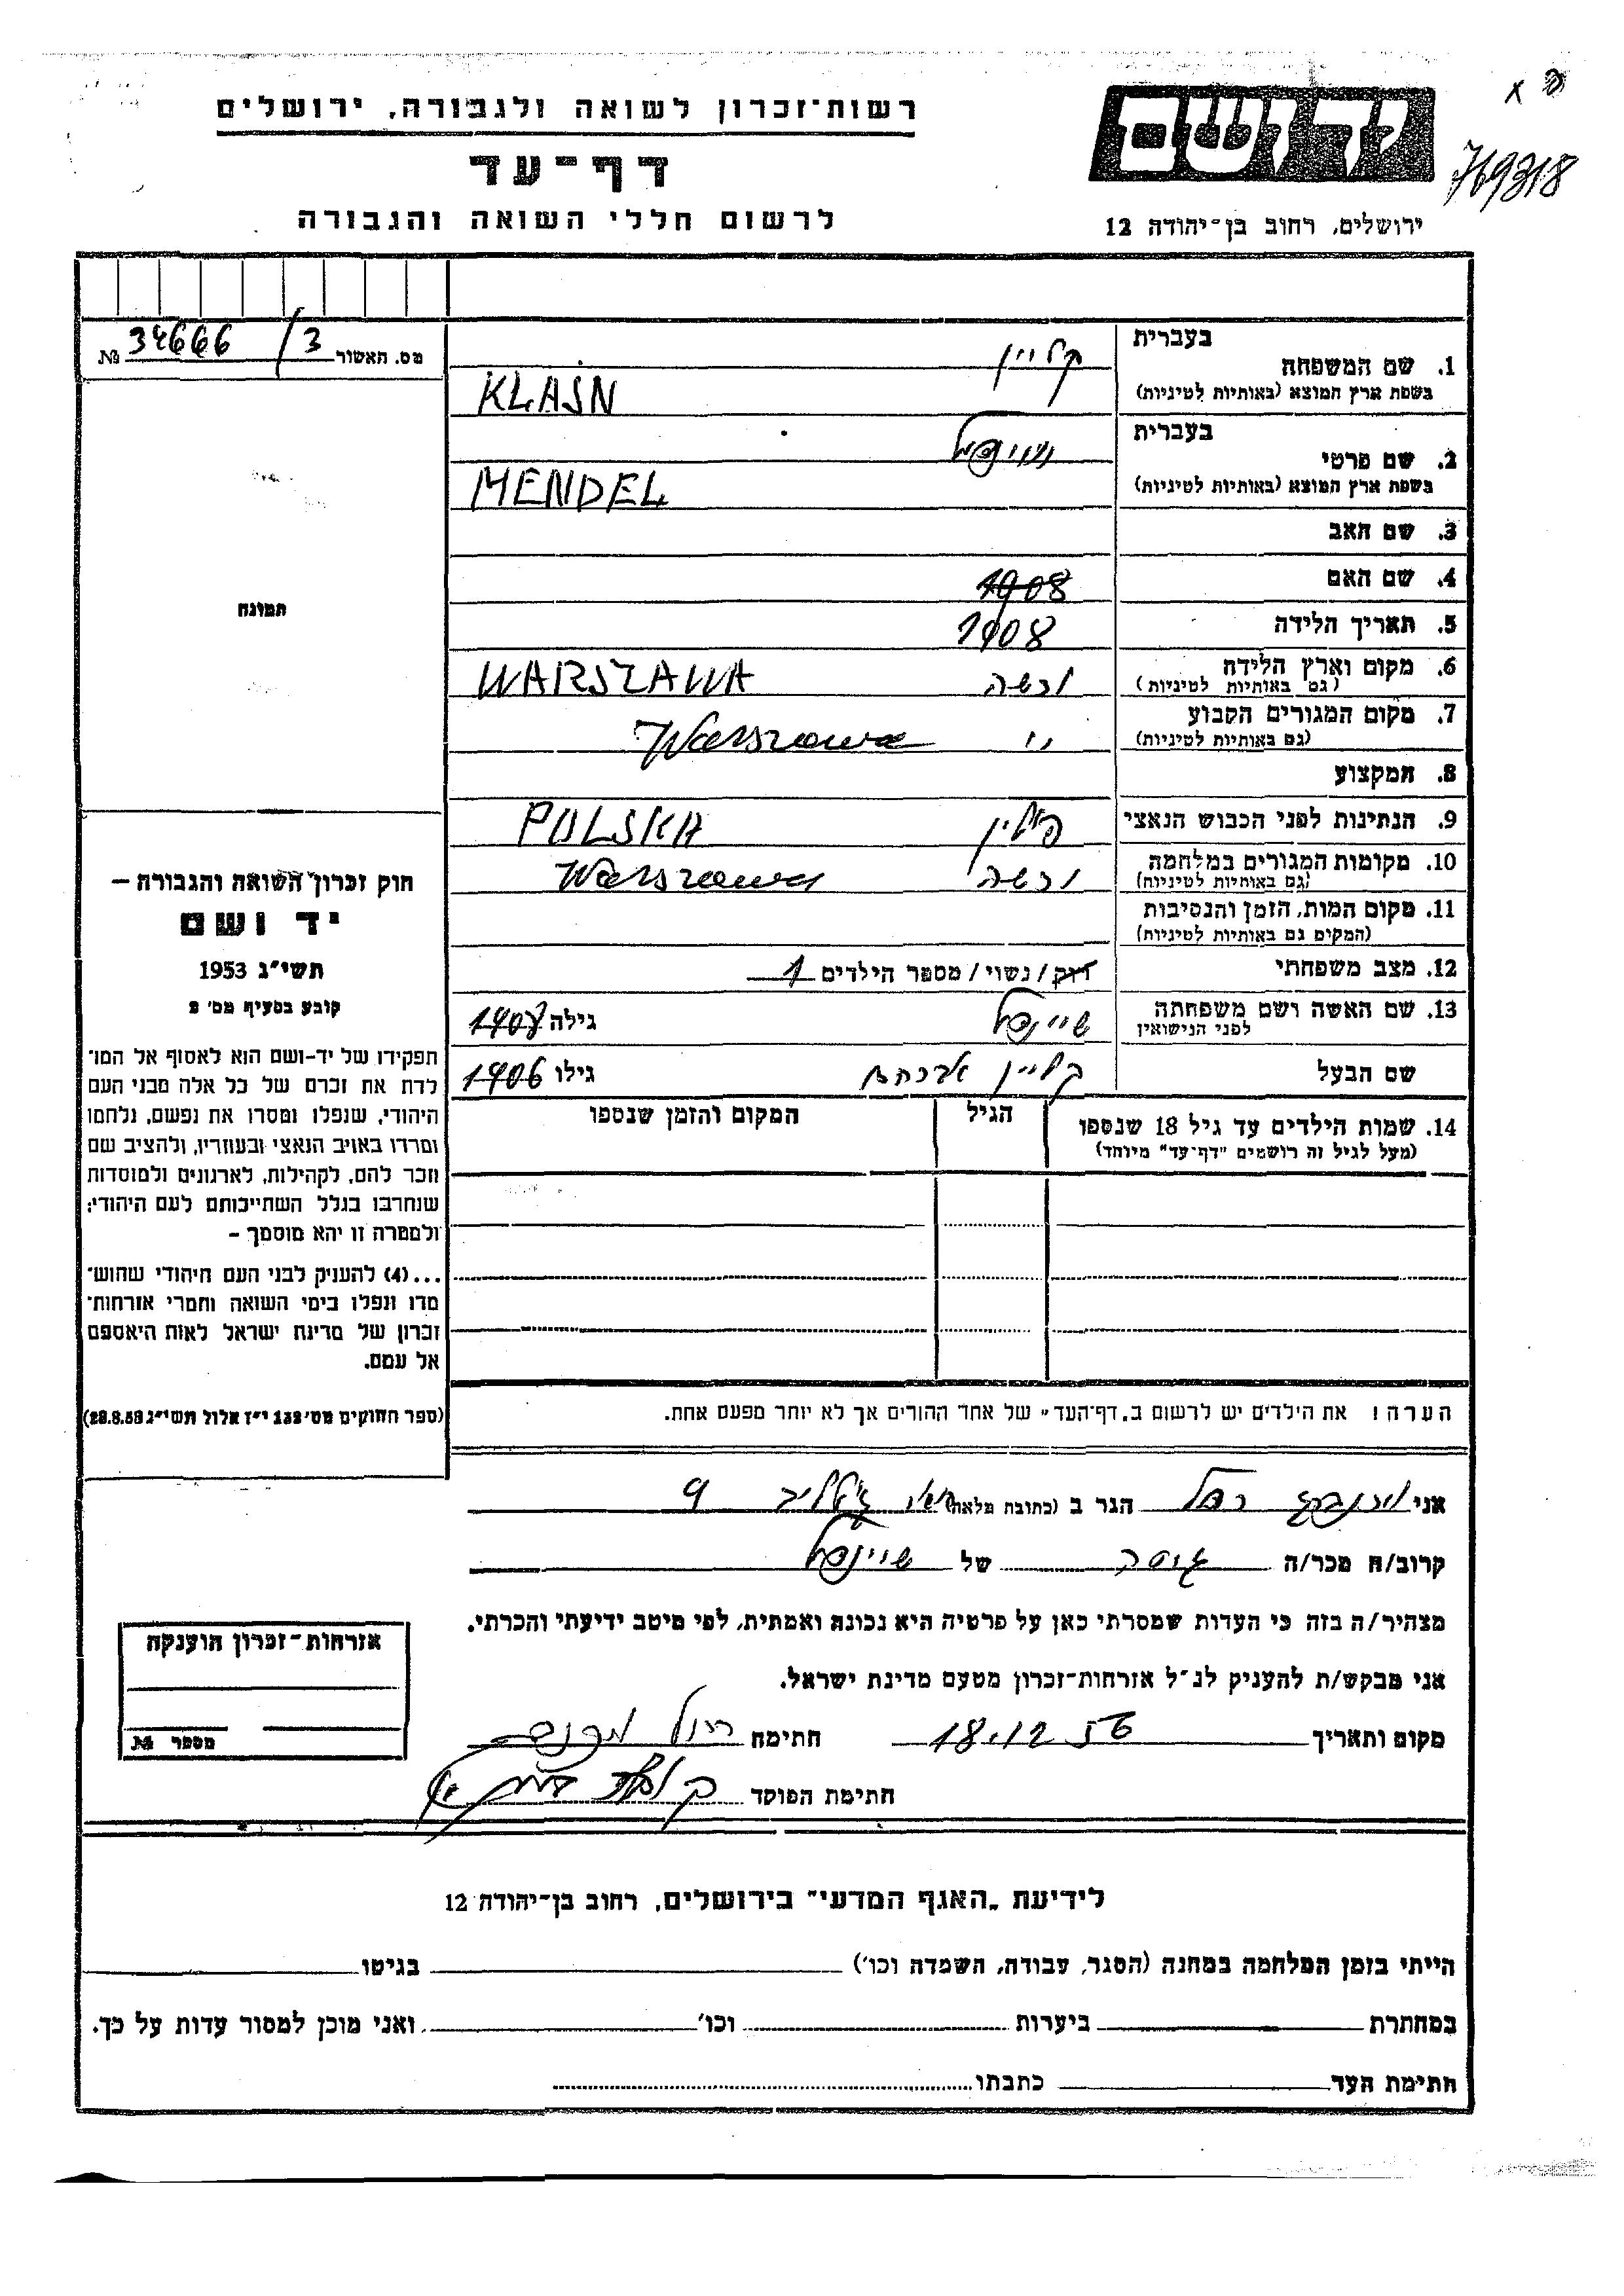 רשות־זכרון לשואה ולגבורה, ירושלים
דף־עד
לרשום חללי השואה והגבורה
יד ושם
769318
ירושלים, רחוב בן־יהודה 12
מס. האשור 3/ 34666 №
בעברית
1. שם המשפחה קליין
בשפת ארץ המוצא (באותיות לטיניות) KLAJN
בעברית
2. שם פרטי
בשפת ארץ המוצא (באותיות לטיניות) MENDEL
3. שם האב
4. שם האם 1908
5. תאריך הלידה 1908
6. מקום וארץ הלידה ורשה WARSZAWA
(גם באותיות לטיניות)
7. מקום המגורים הקבוע " Warszawa
(גם באותיות לטיניות)
8. המקצוע
9. הנתינות לפני הכבוש הנאצי פולין POLSKA
10. מקומות המגורים במלחמה ורשה Warszawa
(גם באותיות לטיניות)
11. מקום המות, הזמן והנסיבות
(המקום גם באותיות לטיניות)
12. מצב משפחתי רווק/נשוי/מספר הילדים 1
13. שם האשה ושם משפחתה גילה 1908
לפני הנישואין
שם הבעל קליין גילו 1906
14. שמות הילדים עד גיל 18 שנספו הגיל המקום והזמן שנספו
(מעל לגיל זה רושמים "דף־עד" מיוחד)
הערה! את הילדים יש לרשום ב„דף־העד" של אחד ההורים אך לא יותר מפעם אחת.
תמונה
חוק זכרון השואה והגבורה –
יד ושם
תשי"ג 1953
קובע בסעיף מס' 2
תפקידו של יד-ושם הוא לאסוף אל המו־
לדת את זכרם של כל אלה מבני העם
היהודי, שנפלו ומסרו את נפשם, נלחמו
ומרדו באויב הנאצי ובעוזריו, ולהציב שם
וזכר להם, לקהילות, לארגונים ולמוסדות
שנחרבו בגלל השתייכותם לעם היהודי;
ולמטרה זו יהא מוסמך –
...(4) להעניק לבני העם היהודי שהוש־
מדו ונפלו בימי השואה והמרי אזרחות־
זכרון של מדינת ישראל לאות היאספם
אל עמם.
(ספר החוקים מס' 132 י"ז אלול תשי"ג 28.8.53)
אני רחל הגר ב (כתובת מלאה) 9
קרוב/ה מכר/ה גיסה של
מצהיר/ה בזה כי העדות שמסרתי כאן על פרטיה היא נכונה ואמתית, לפי מיטב ידיעתי והכרתי.
אני מבקש/ת להעניק לנ"ל אזרחות־זכרון מטעם מדינת ישראל.
מקום ותאריך 18.12.56 חתימה רחל
חתימת הפוקד
אזרחות־זכרון הוענקה
מספר №
לידיעת „האגף המדעי" בירושלים, רחוב בן־יהודה 12
הייתי בזמן המלחמה במחנה (הסגר, עבודה, השמדה וכו') בגיטו
במחתרת ביערות וכו' ואני מוכן למסור עדות על כך.
חתימת העד כתבתו